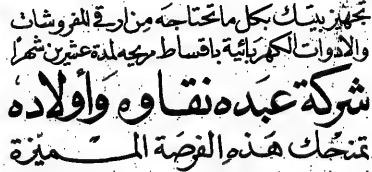 تجهيز بيتك بكل ما تحتاجه من ارقى المفروشات
والادوات الكهربائية باقساط مريحه لمدة عشرين شهرا
شركة عبده نقاوه وأولاده
تمنحك هذه الفرصة المميّزة